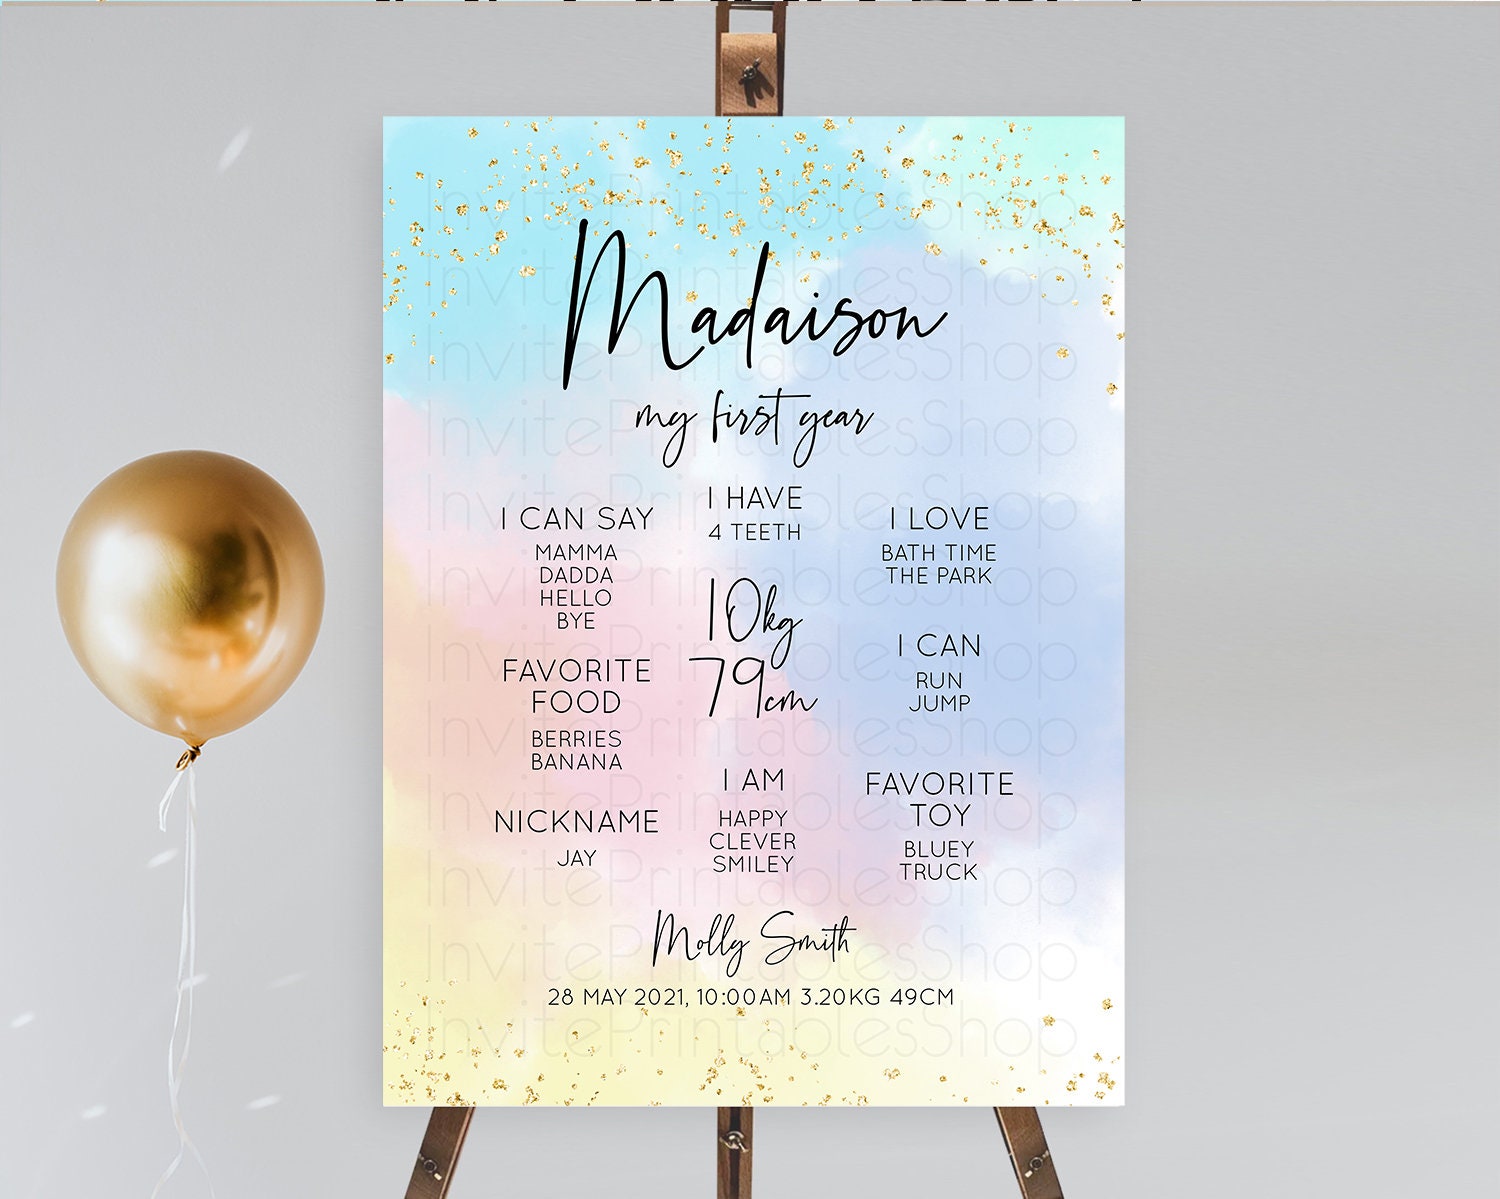 Madaison
my first year
I CAN SAY
MAMMA
DADDA
HELLO
BYE
FAVORITE
FOOD
BERRIES
BANANA
NICKNAME
JAY
I HAVE
4 TEETH
10kg
79cm
I AM
HAPPY
CLEVER
SMILEY
I LOVE
BATH TIME
THE PARK
I CAN
RUN
JUMP
FAVORITE
TOY
BLUEY
TRUCK
Molly Smith
28 MAY 2021, 10:00AM 3.20KG 49CM
InvitePrintablesShop
InvitePrintablesShop
InvitePrintablesShop
InvitePrintablesShop
InvitePrintablesShop
InvitePrintablesShop
InvitePrintablesShop
InvitePrintablesShop
InvitePrintablesShop
InvitePrintablesShop